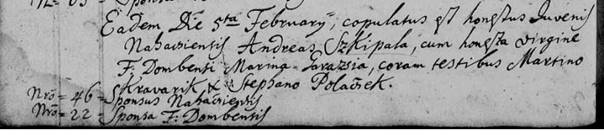 Nro = 63 = Sponsa
Eadem Die 5ta February, copulatus est honestus Iuvenis
Nahaviensis Andreas Szkipala, cum honesta virgine
F: Dombensi Marina Garazsia, coram testibus Martino
Skravarik & Stephano Polacsek.
Nro = 46 = Sponsus Nahaviensis
Nro = 22 = Sponsa F: Dombensis